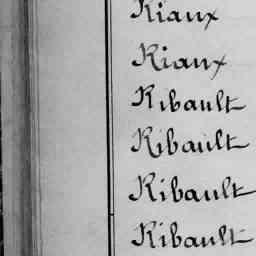 Riaux
Riaux
Ribault
Ribault
Ribault
Ribault